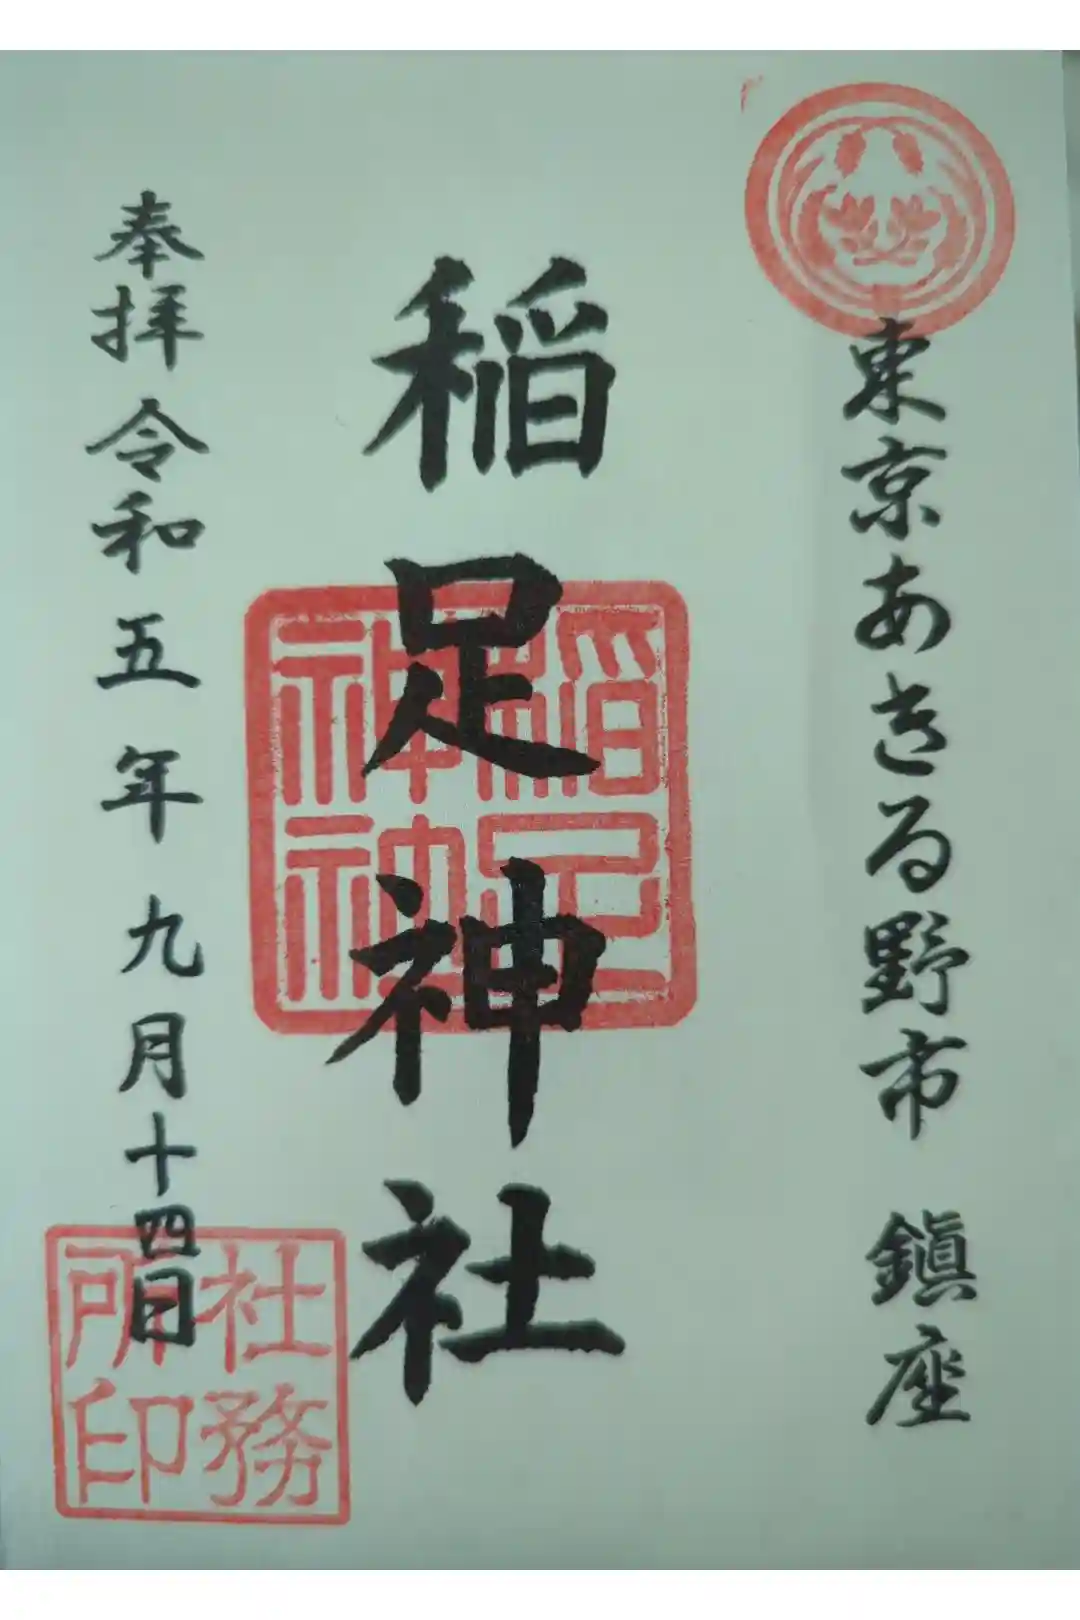 東京あきる野市 鎭座
稲足神社
稲足神社
奉拝 令和五年九月十四日
社務所印